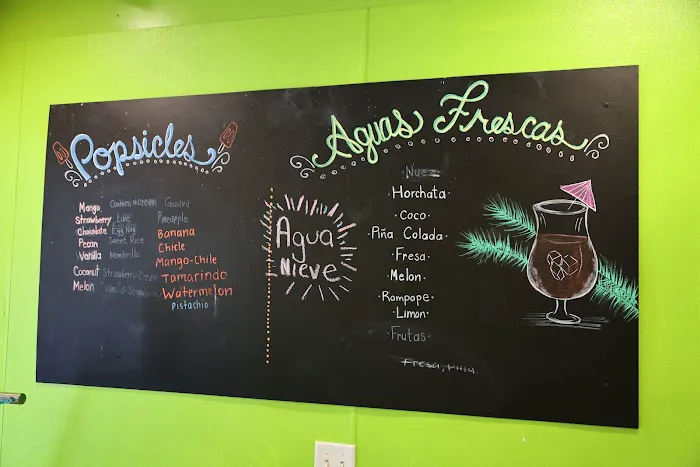 Popsicles
Mango
Strawberry
Chocolate
Pecan
Vanilla
Coconut
Melon
Cookies n cream
Egg Nog
Sweet Rice
Mantecado
Guava
Pineapple
Banana
Chicle
Mango-Chile
Tamarindo
Watermelon
Pistachio
Agua
Nieve
Aguas Frescas
Nuez
Horchata
Coco
Piña Colada
Fresa
Melon
Rompope
Limon
Frutas
Fresa, Piña